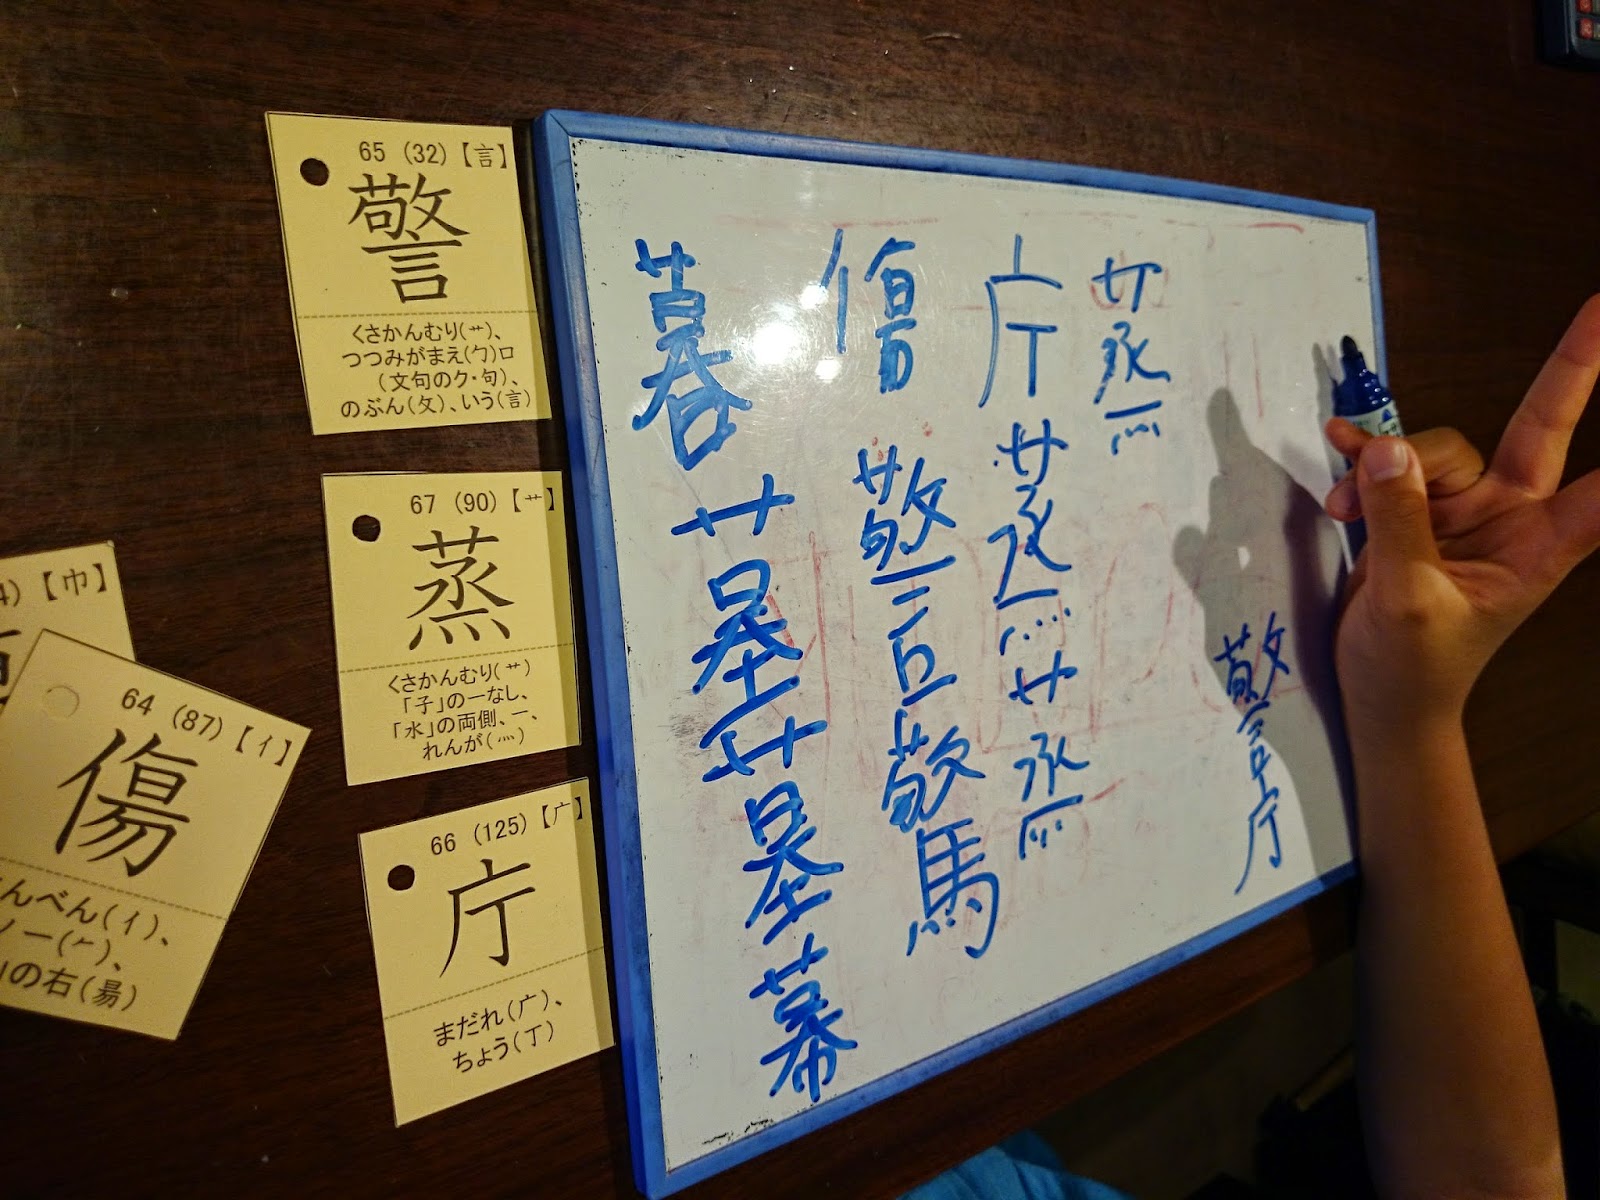 65 (32)【言】
警
くさかんむり(艹)、
つつみがまえ(勹)口
(文句のク・句)、
のぶん(攵)、いう(言)
67 (90)【艹】
蒸
くさかんむり(艹)
「子」の一なし、
「水」の両側、一、
れんが(灬)
66 (125)【广】
庁
まだれ(广)、
ちょう(丁)
4)【巾】
64 (87)【亻】
傷
んべん(亻)、
ノ一(𠂉)、
」の右(昜)
蒸
庁 蒸 蒸
傷 警 警
暮 墓 墓 幕
警庁